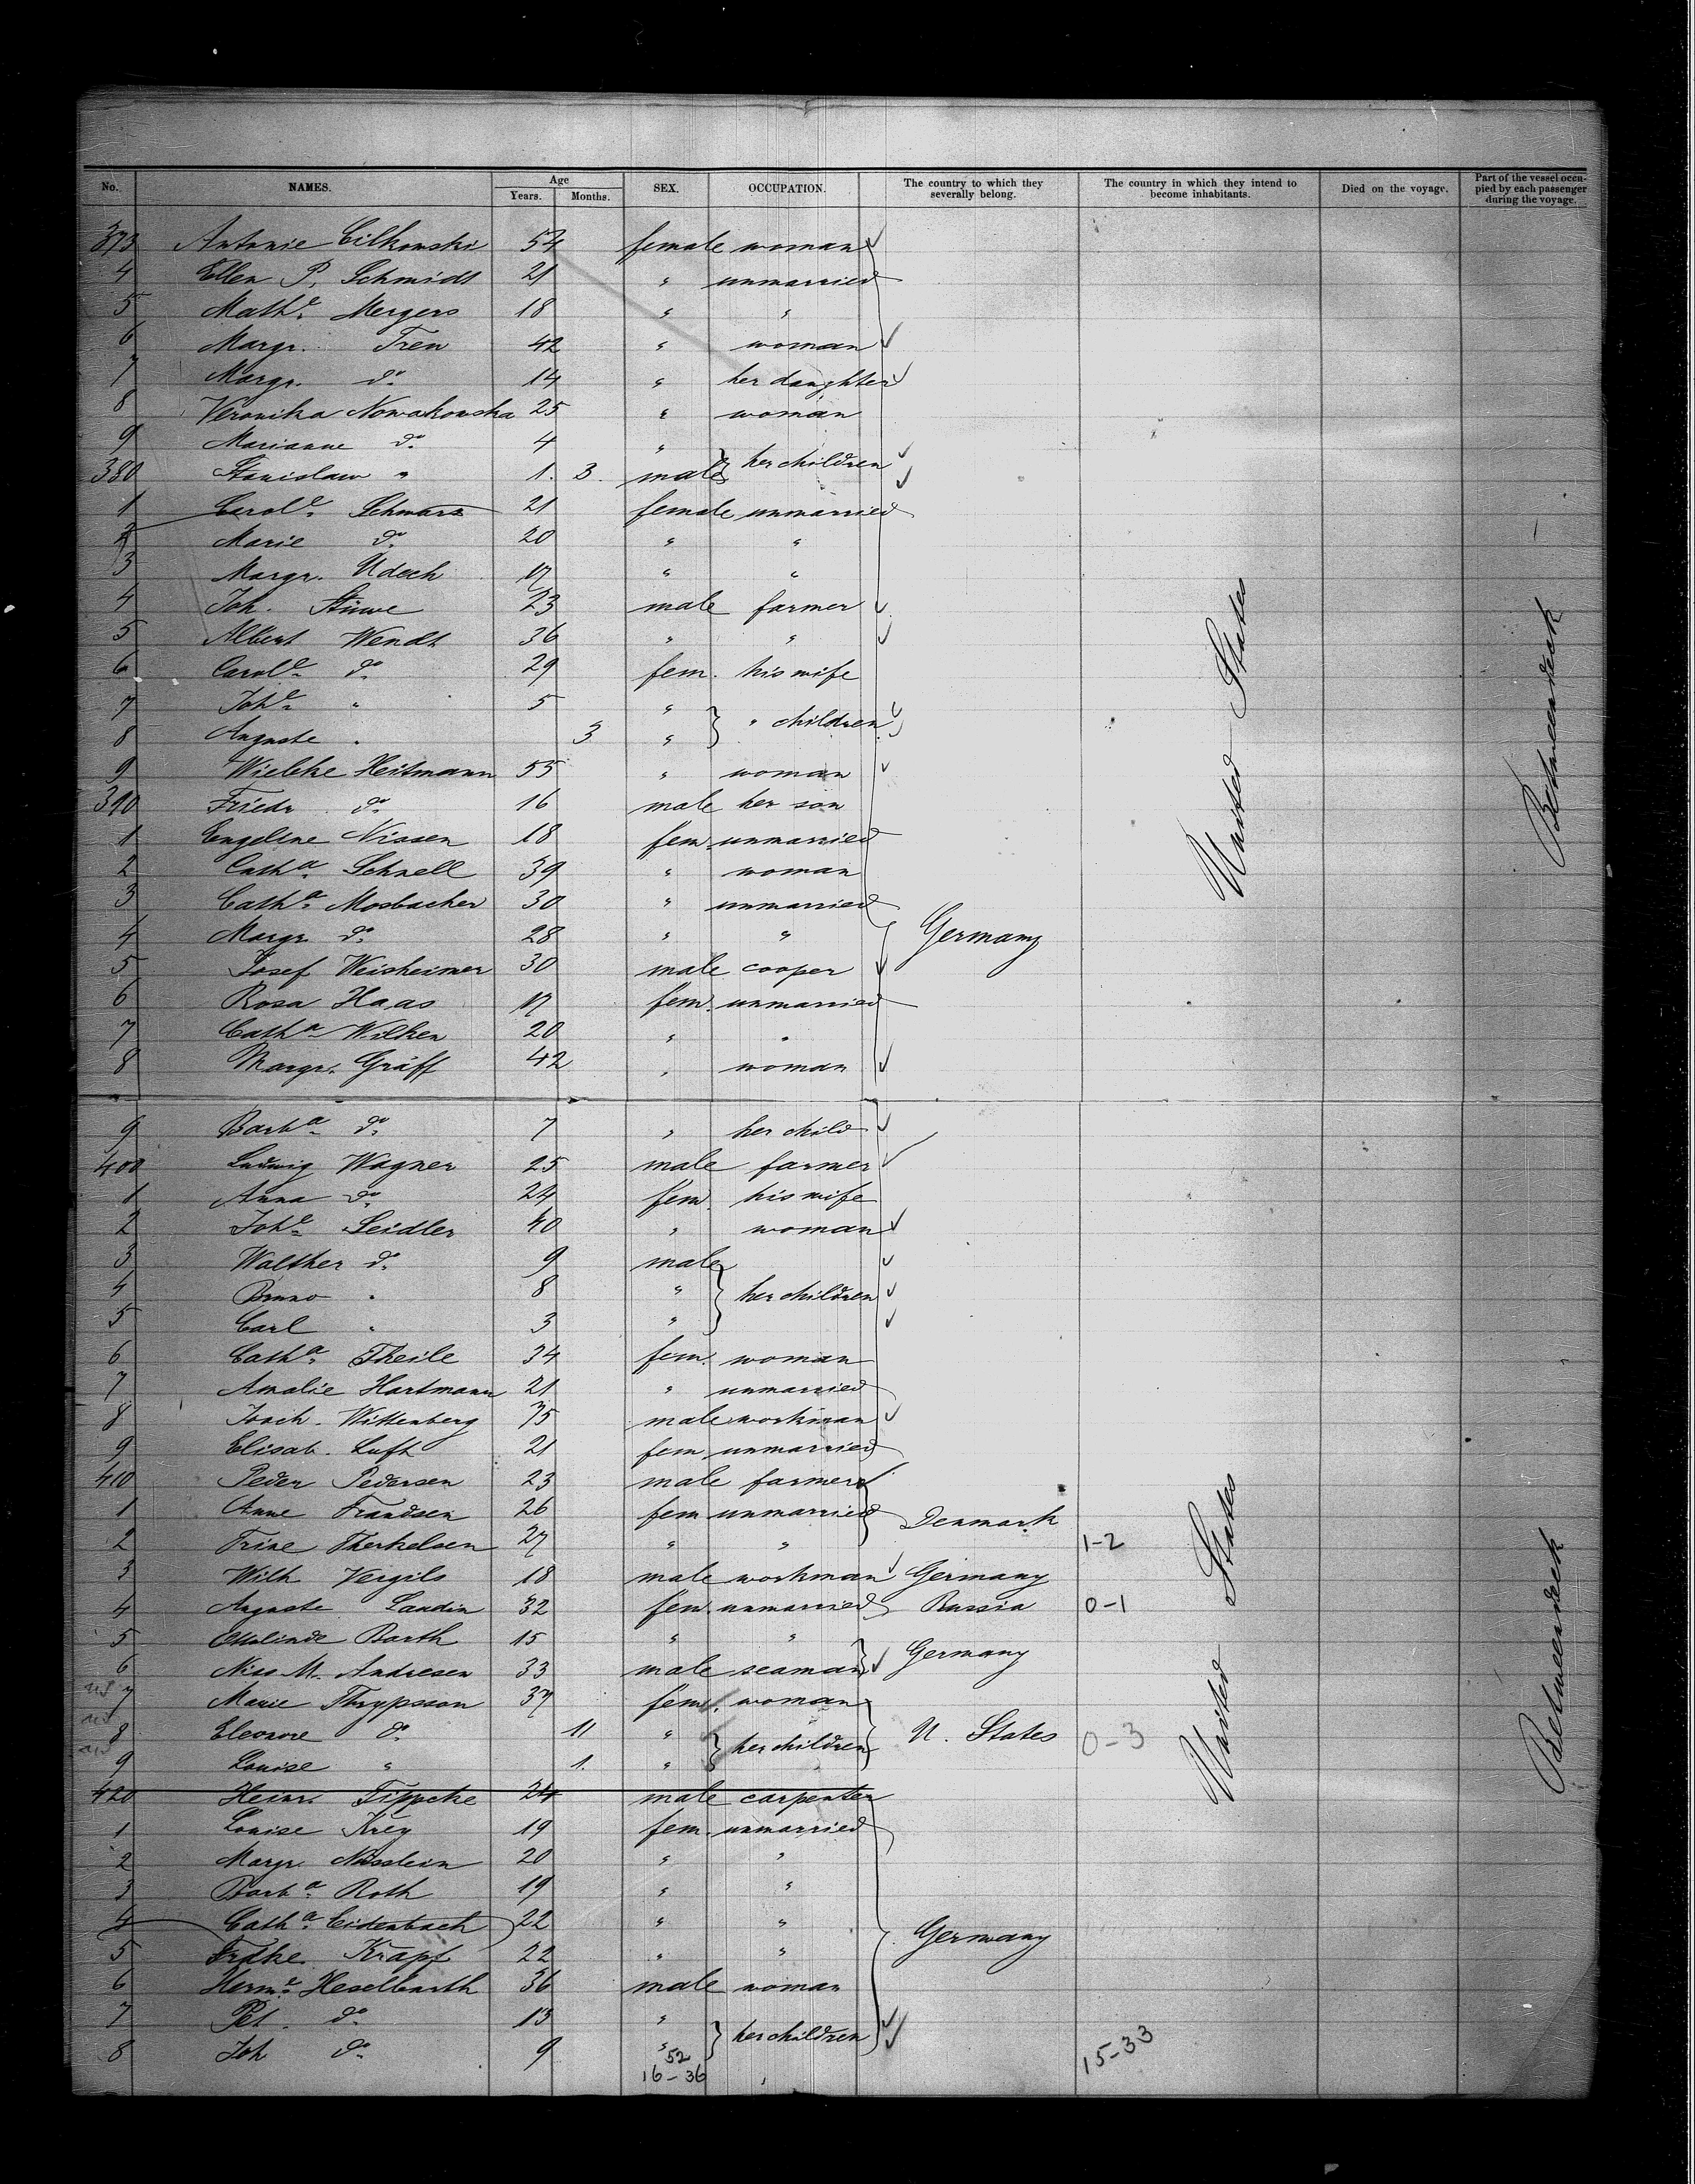 No. NAMES. Age Years. Months. SEX. OCCUPATION. The country to which they severally belong. The country in which they intend to become inhabitants. Died on the voyage. Part of the vessel occupied by each passenger during the voyage.
373 Antonie Cilkowski 54 female woman
4 Ellen P. Schmidt 21 " unmarried
5 Mathe. Mergers 18 " "
6 Margr. Tren 42 " woman
7 Margr. do. 14 " her daughter
8 Veronika Nowakowska 25 " woman
9 Marianne do. 4 "
380 Stanislaw " 1. 3. male her children
1 Carole. Schwarz 21 female unmarried
2 Marie do. 20 " "
3 Margr. Udech 17 " "
4 Joh. Stüwe 23 male farmer
5 Albert Wendt 36 " "
6 Carole. do. 29 fem. his wife
7 Johe. " 5 " " children
8 Auguste " 3 "
9 Wiebke Heitmann 55 " woman
390 Friedr. do. 16 male her son
1 Engeline Nissen 18 fem. unmarried
2 Catha. Schnell 39 " woman
3 Catha. Mosbacher 30 " unmarried
4 Margr. do. 28 " " Germany
5 Josef Weisheimer 30 male cooper
6 Rosa Haas 17 fem. unmarried
7 Catha. Wilken 20 " "
8 Margr. Gräff 42 " woman
United States
Betweendeck
9 Barba. do. 7 " her child
400 Ludwig Wagner 25 male farmer
1 Anna do. 24 fem. his wife
2 Johe. Seidler 40 " woman
3 Walther do. 9 male
4 Bruno " 8 " her children
5 Carl " 3 "
6 Catha. Theile 34 fem. woman
7 Amalie Hartmann 21 " unmarried
8 Joach. Wittenberg 75 male workman
9 Elisab. Luft 21 fem. unmarried
410 Peder Pedersen 23 male farmer
1 Anne Frandsen 26 fem unmarried Denmark
2 Trine Therkelsen 27 " " 1-2
3 Wilh Vergils 18 male workman Germany
4 Auguste Landin 32 fem. unmarried Russia 0-1
5 Ottolinde Barth 15 " " Germany
6 Niss M. Andresen 33 male seaman
7 Marie Thrypsson 37 fem. woman
8 Eleonore do. 11 " her children U. States 0-3
9 Louise " 1. "
420 Heinr. Tippcke 24 male carpenter
1 Louise Krey 19 fem. unmarried
2 Margr. Nüsslein 20 " "
3 Barba. Roth 19 " "
4 Catha. Eidenbach 22 " " Germany
5 Fredke. Krapf 22 " "
6 Herme. Heselbarth 36 male woman
7 Pet. do. 13 " her children
8 Joh do. 9 "
United States
Betweendeck
52
16-36
15-33